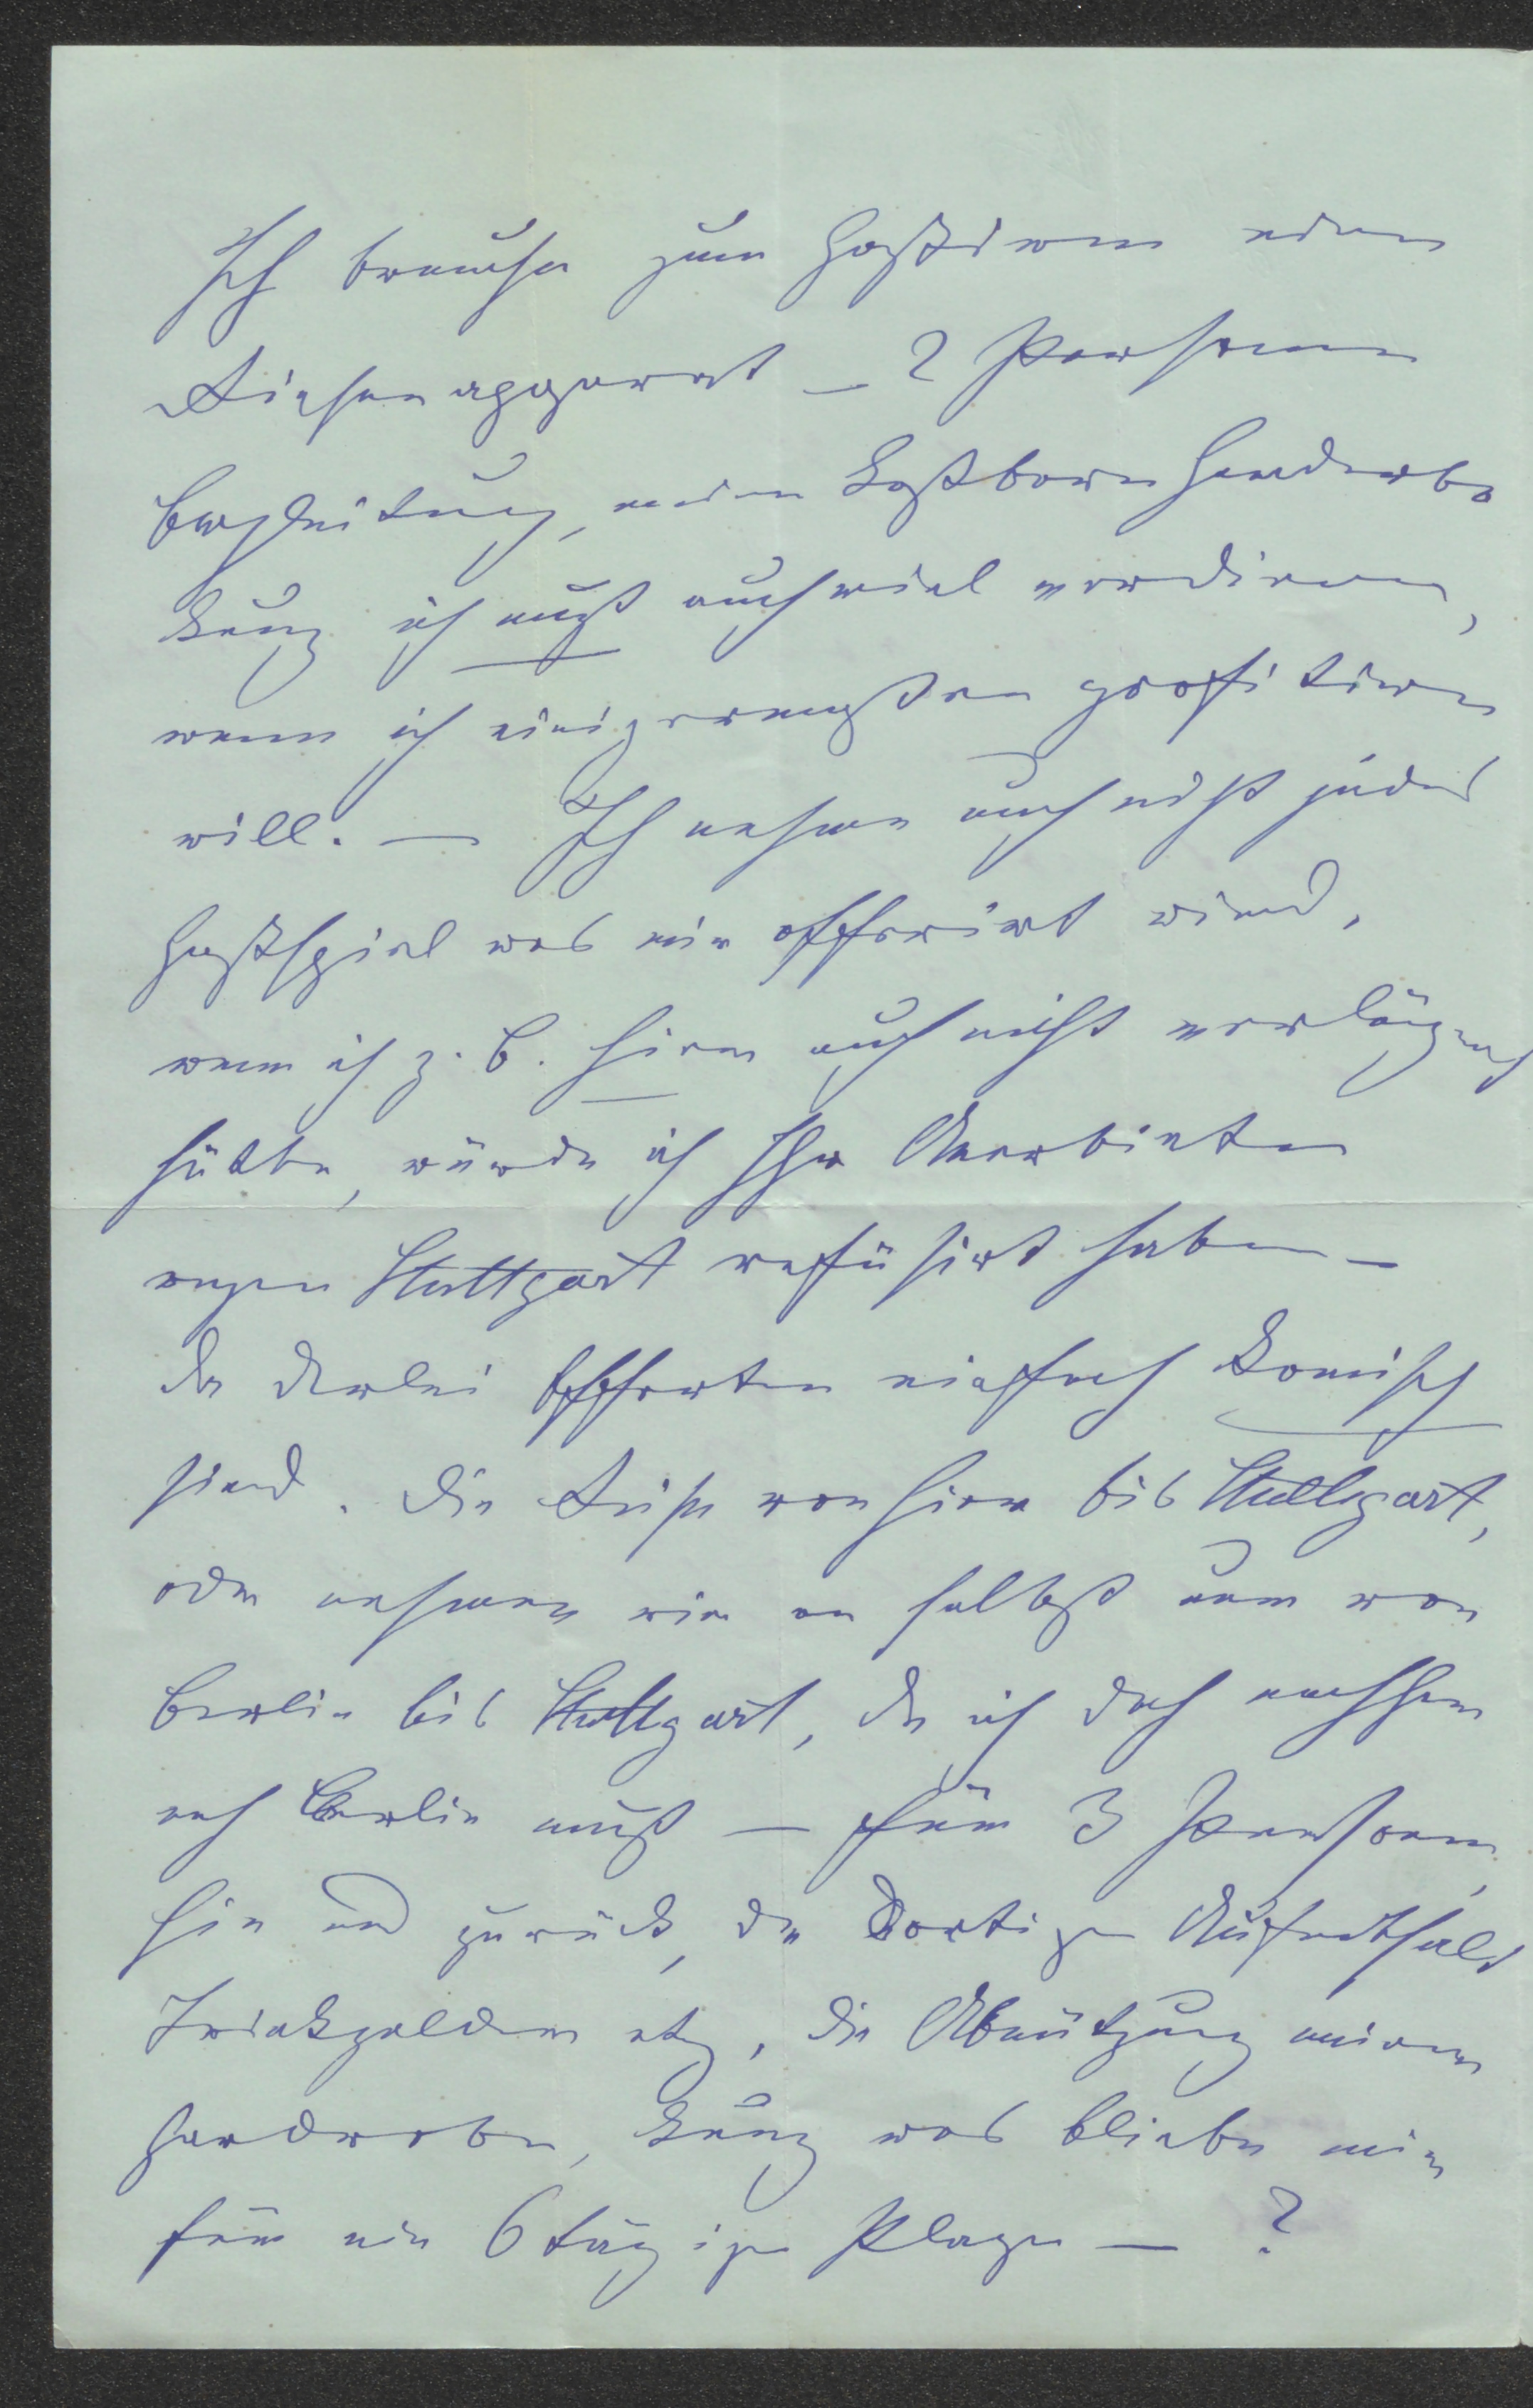 Ich brauche zum Gastiren einen
Riesenapparat – 2 Personen
Begleitung, meine kostbare Garderobe
kurz ich muß auch viel verdienen,
wenn ich einigermaßen profitiren
will. – Ich nehme auch nicht jedes
Gastspiel was mir offerirt wird,
wenn ich z. B. hier auch nicht verlängert
hätte, würde ich Ihr Anerbieten
wegen Stuttgart refüsirt haben –
da derlei Offerten einfach komisch
sind. Die Reise von hier bis Stuttgart,
oder nehmen wir an selbst nur von
Berlin bis Stuttgart, da ich doch nachher
nach Berlin muß – für 3 Personen,
hin und zurück, der dortige Aufenthalt
Trinkgelder etz, die Abnützung meiner
Garderobe, kurz was bliebe mir
für eine 6 tägige Plage – ?